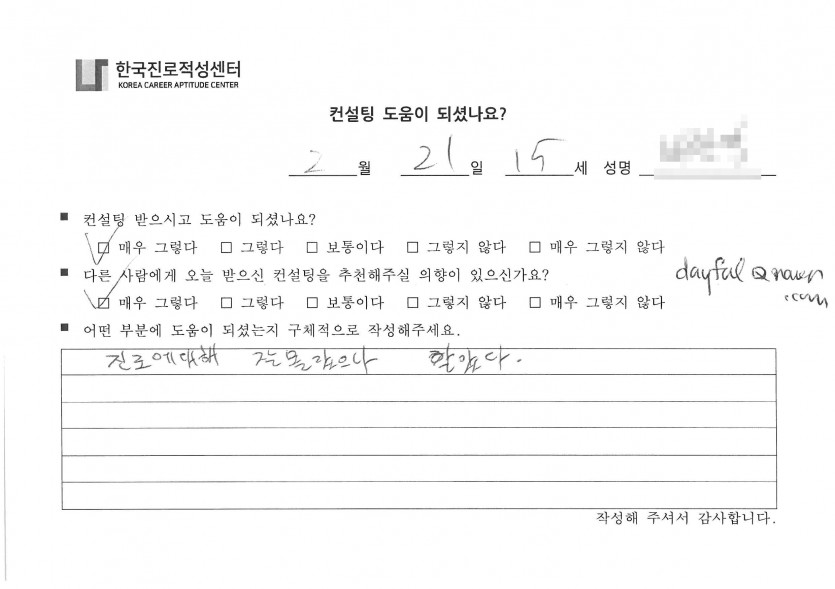 한국진로적성센터
KOREA CAREER APTITUDE CENTER
컨설팅 도움이 되셨나요?
2 월 21 일 15 세 성명
■ 컨설팅 받으시고 도움이 되셨나요?
☑ 매우 그렇다 □ 그렇다 □ 보통이다 □ 그렇지 않다 □ 매우 그렇지 않다
■ 다른 사람에게 오늘 받으신 컨설팅을 추천해주실 의향이 있으신가요?
☑ 매우 그렇다 □ 그렇다 □ 보통이다 □ 그렇지 않다 □ 매우 그렇지 않다
■ 어떤 부분에 도움이 되셨는지 구체적으로 작성해주세요.
진로에대해 잘몰랐으나 알았다.
작성해 주셔서 감사합니다.